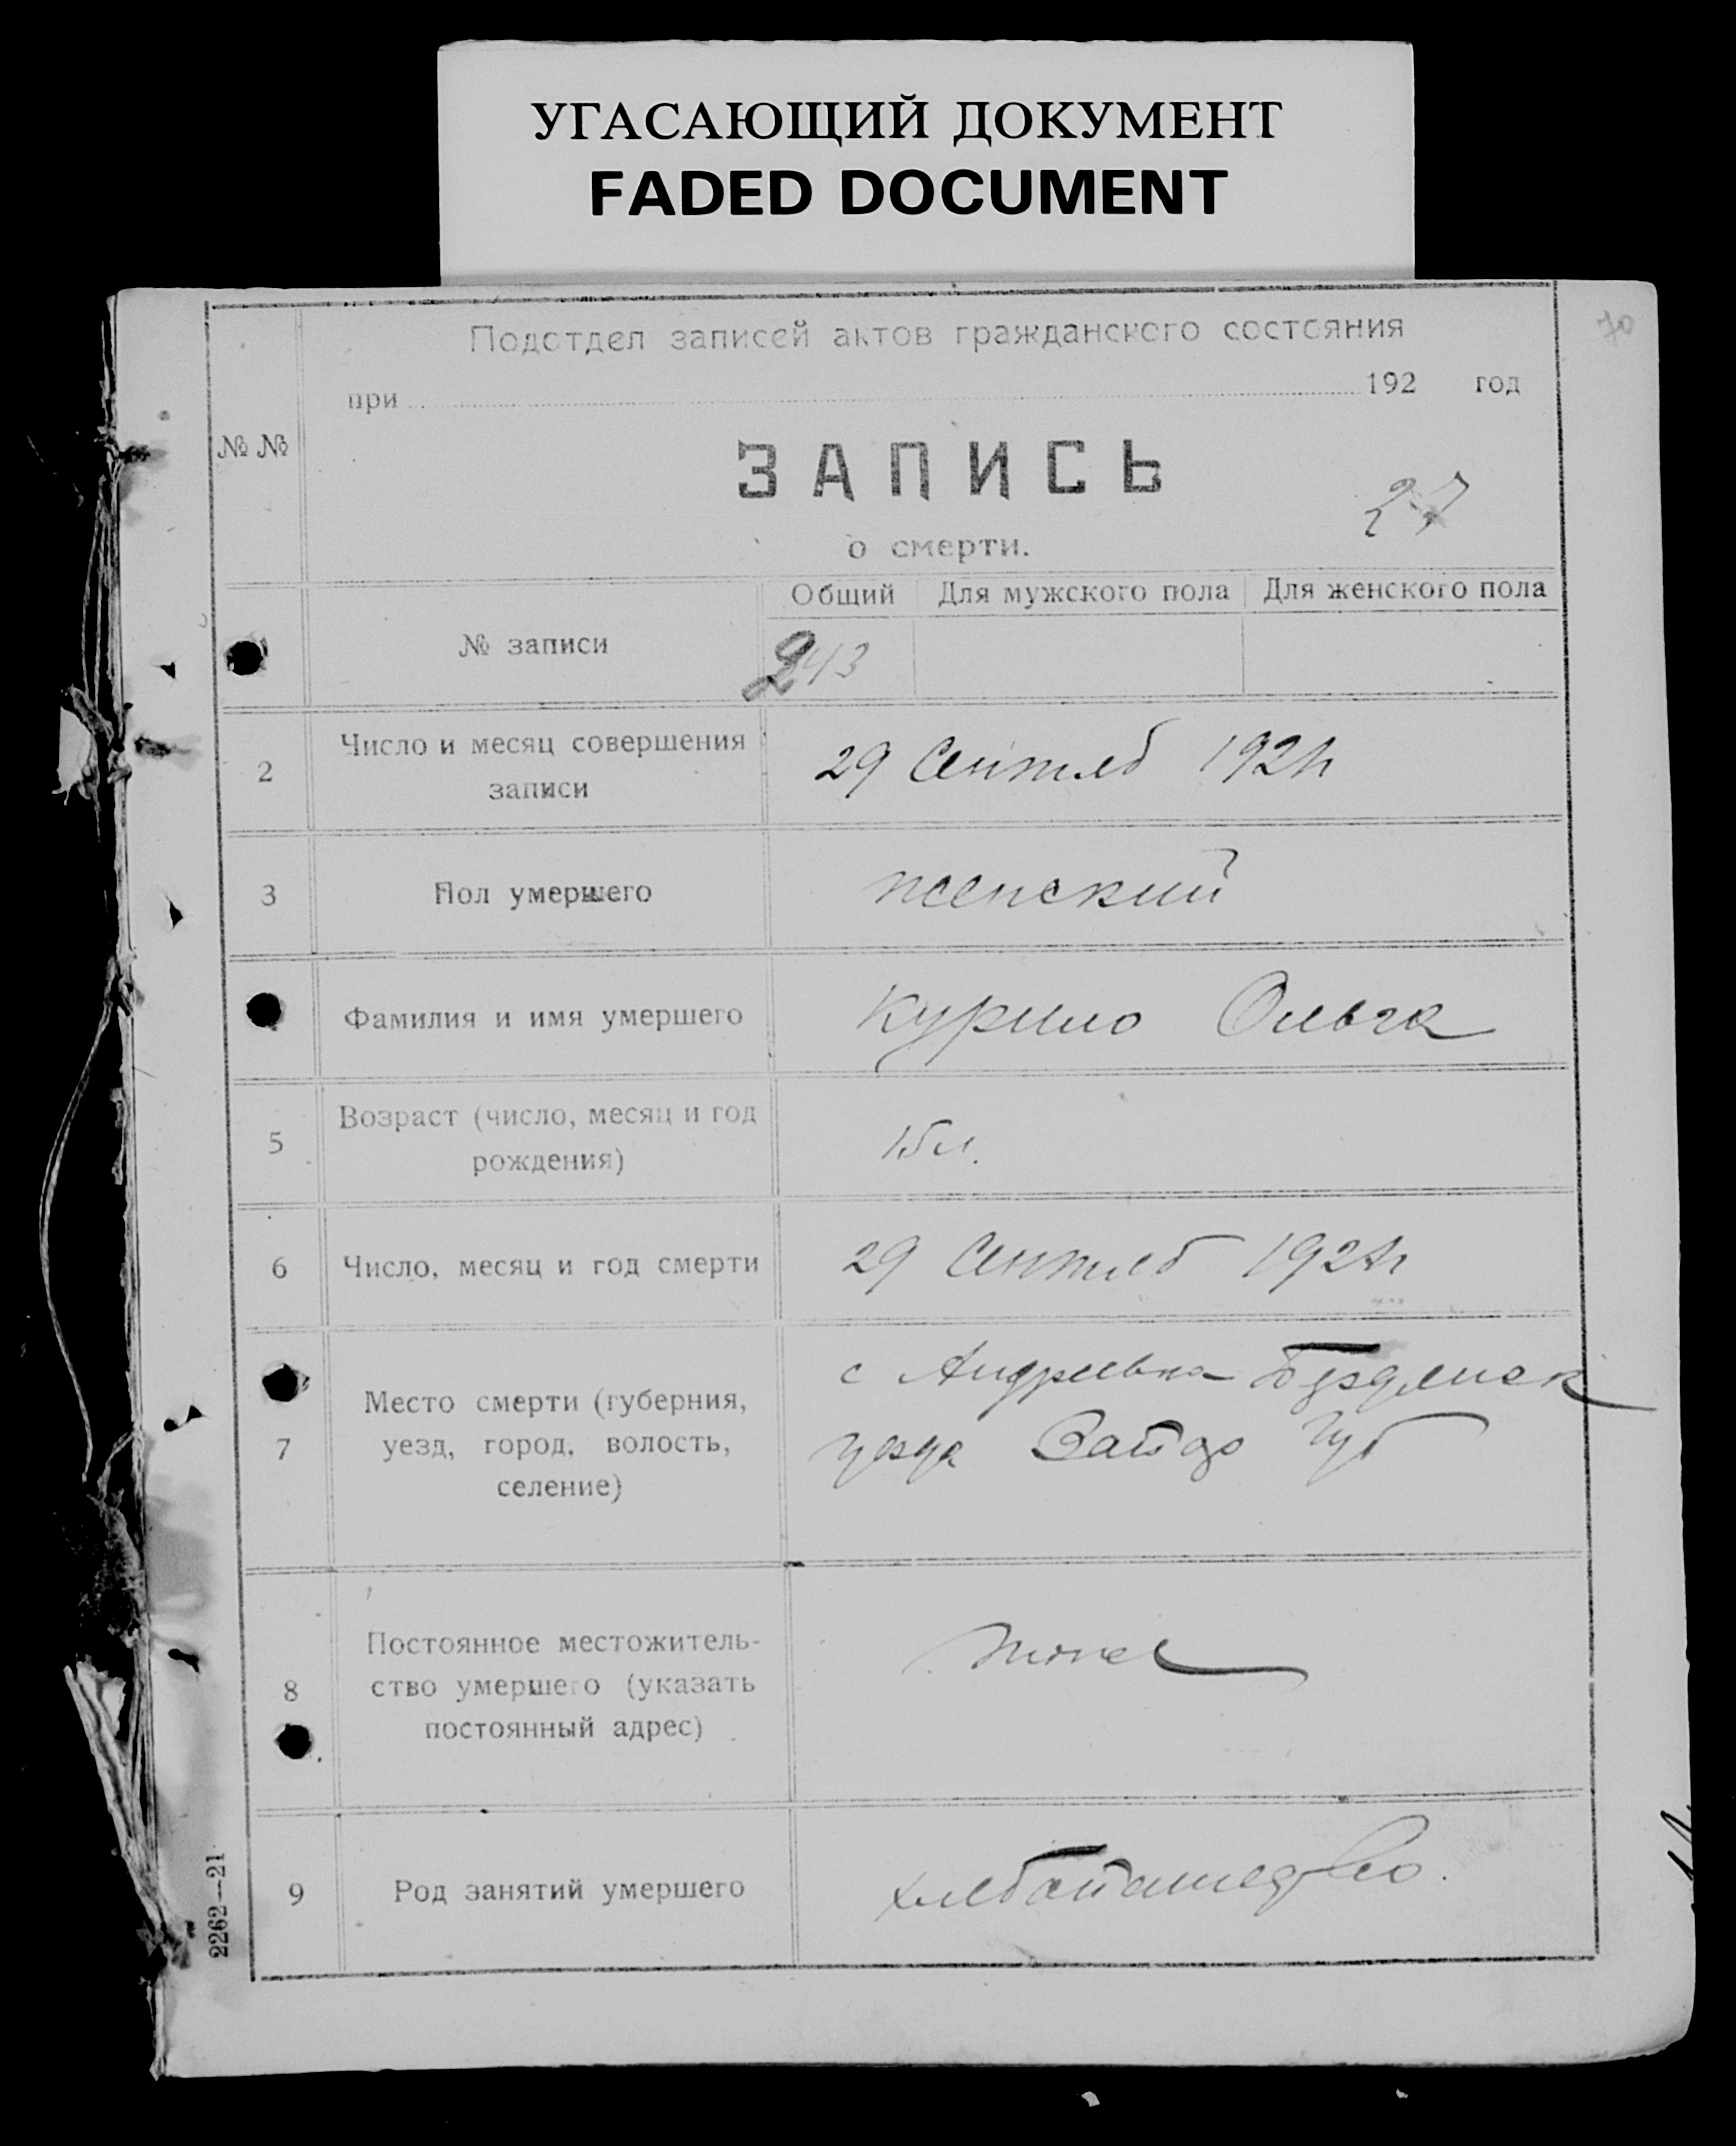 УГАСАЮЩИЙ ДОКУМЕНТ
FADED DOCUMENT
70
Подотдел записей актов гражданского состояния
при 192 год
№ №
ЗАПИСЬ
27
о смерти.
Общий Для мужского пола Для женского пола
№ записи
243
2
Число и месяц совершения
записи
29 Сентяб 192
3
Пол умершего
женский
Фамилия и имя умершего
Курило Ольга
5
Возраст (число, месяц и год
рождения)
15 л.
6
Число, месяц и год смерти
29 Сентяб 192
7
Место смерти (губерния,
уезд, город, волость,
селение)
с Андреевка Бердянск
уезда Запор Губ
8
Постоянное местожитель-
ство умершего (указать
постоянный адрес)
9
Род занятий умершего
2262—21